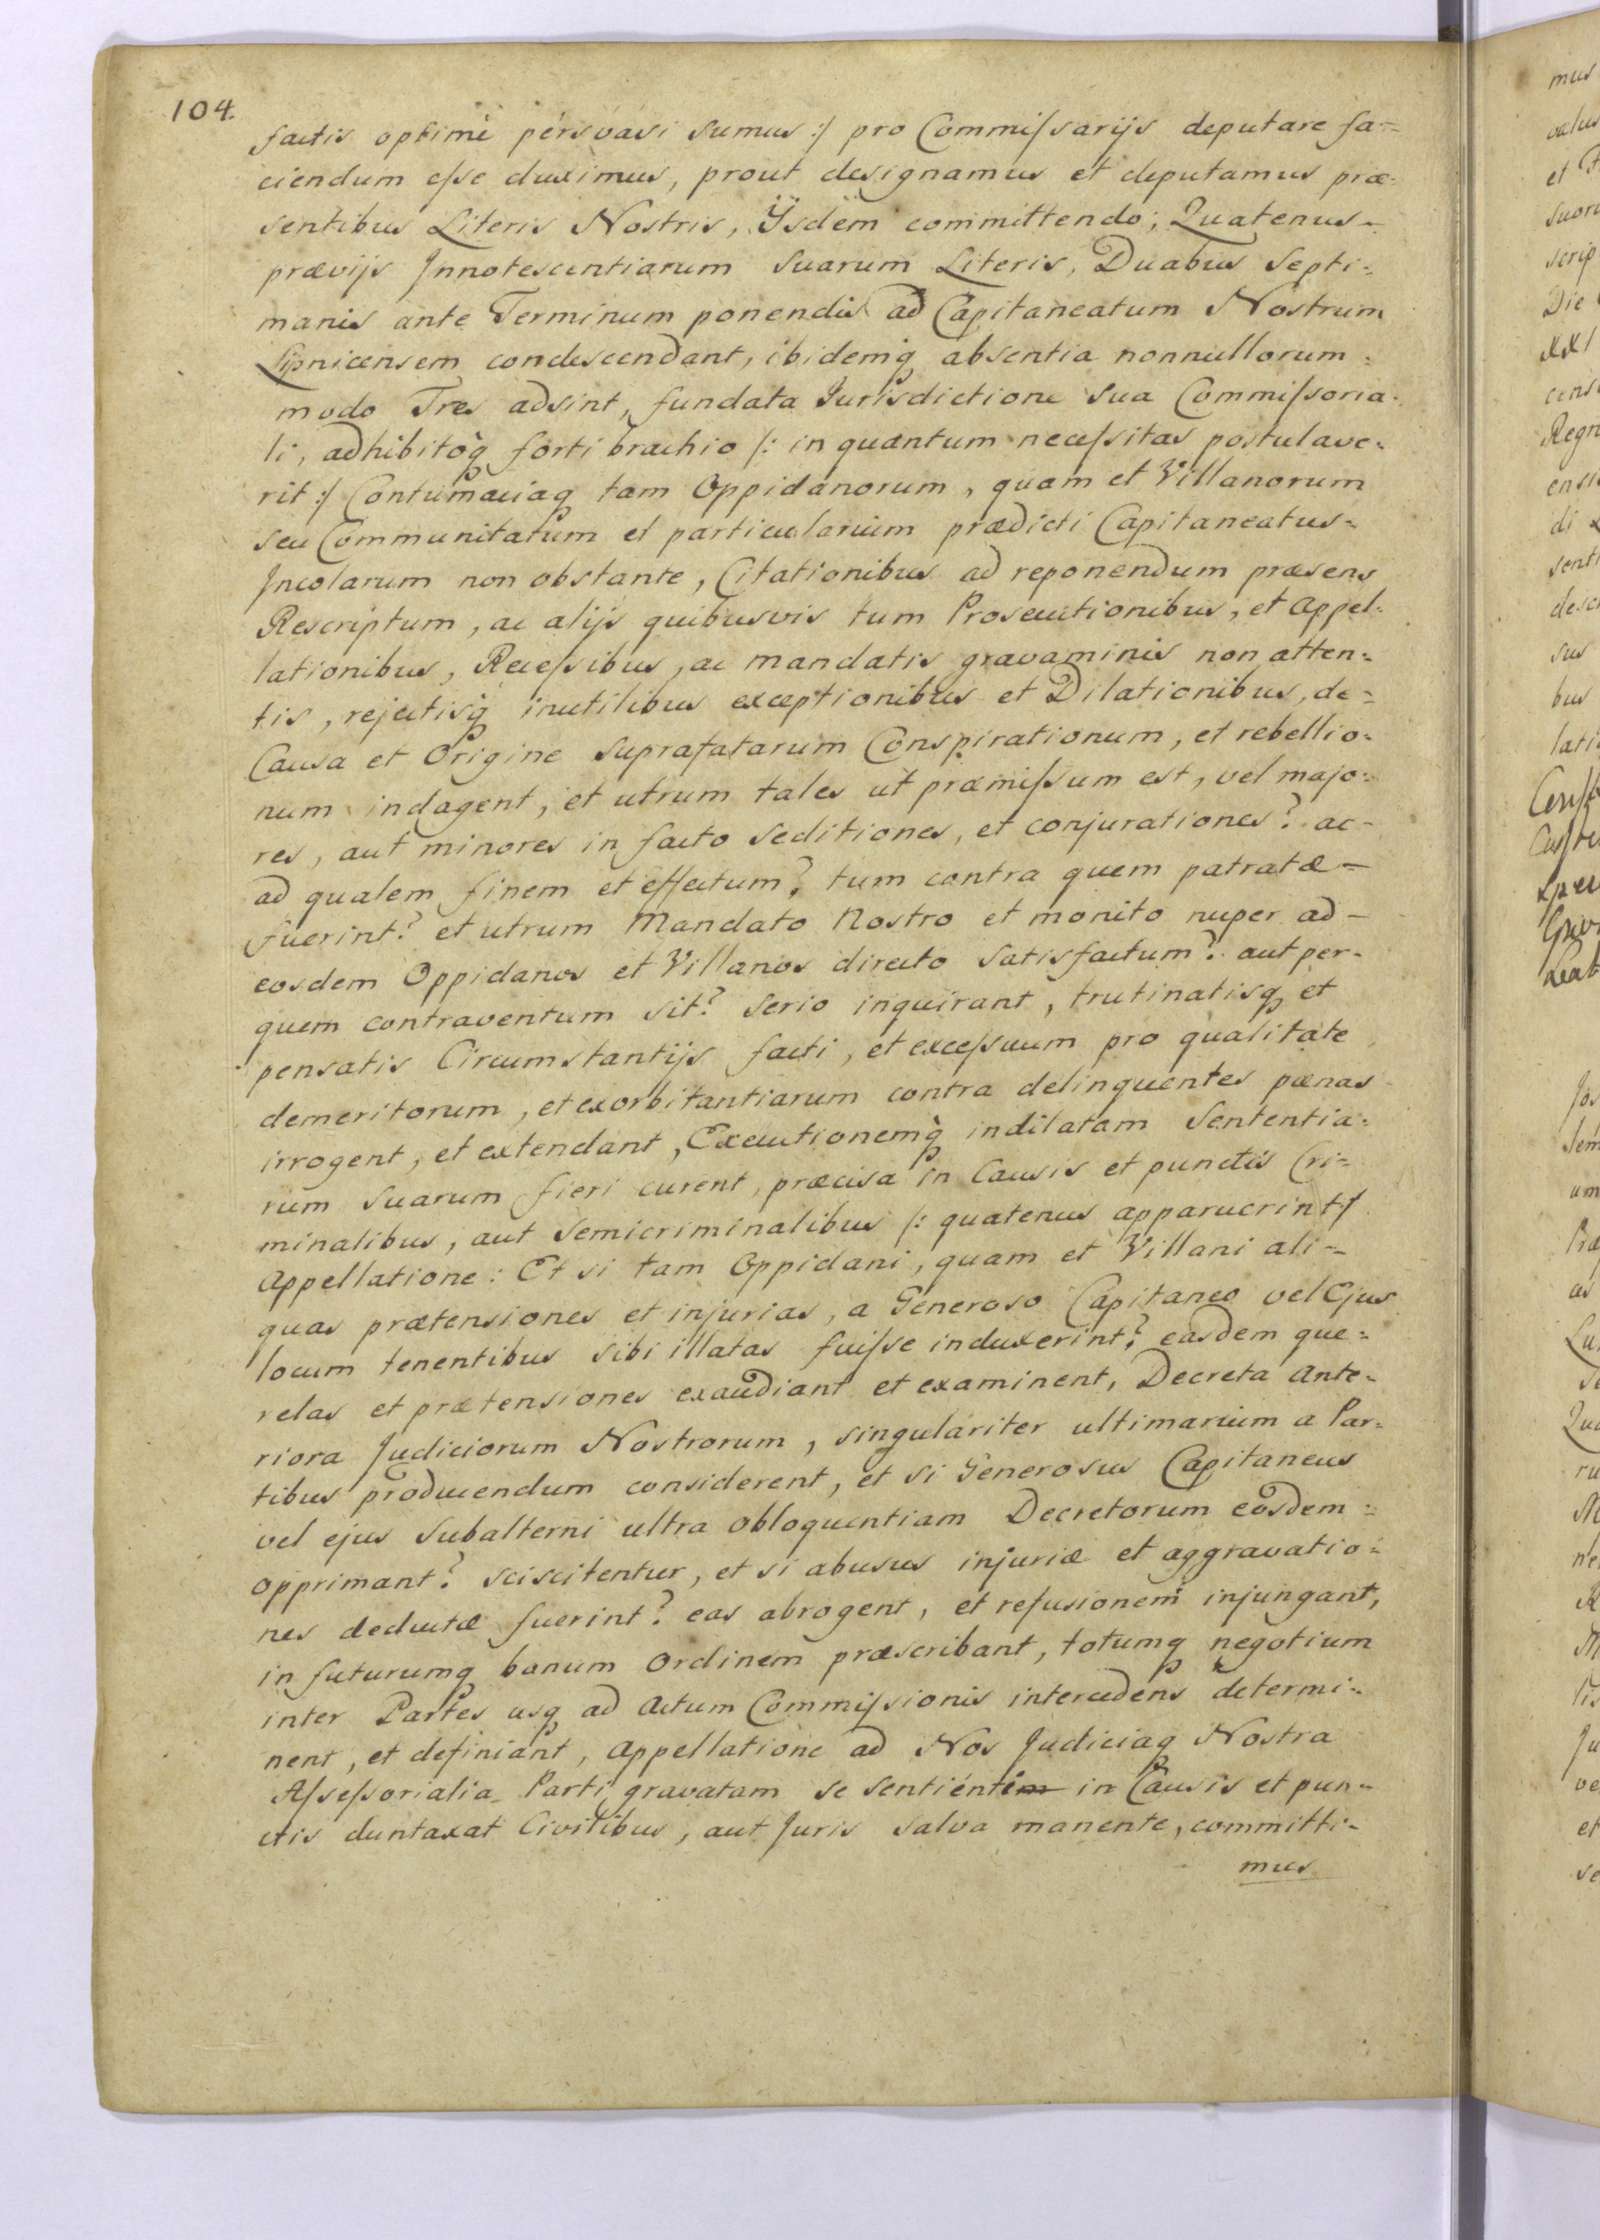 104.
factis optimè persvasi sumus :/ pro Commissarijs deputare fa=
ciendum esse duximus, prout designamus et deputamus præ=
sentibus Literis Nostris, Ysdem committendo; Quatenus=
prævijs Innotescentiarum suarum Literis, Duabus Septi=
manis ante Terminum ponendis ad Capitaneatum Nostrum
Lipnicensem condescendant, ibidemq absentia nonnullorum=
modo Tres adsint, fundata Jurisdictione sua Commissoria=
li, adhibitoq forti brachio /: in quantum necessitas postulave=
rit :/ Contumaciaq tam Oppidanorum, quam et Villanorum
seu Communitatum et particularium prædicti Capitaneatus=
Incolarum non obstante, Citationibus ad reponendum præsens
Rescriptum, ac alijs quibusvis tum Prosecutionibus, et Appel=
lationibus, Recessibus, ac mandatis gravaminis non atten=
tis, rejectisq inutilibus exceptionibus et Dilationibus, de=
Causa et Origine suprafatarum Conspirationum, et rebellio=
num indagent, et utrum tales ut præmissum est, vel majo=
res, aut minores in facto seditiones, et conjurationes? ac=
ad qualem finem et effectum? tum contra quem patratæ=
fuerint? et utrum Mandato Nostro et monito nuper ad=
eosdem Oppidanos et Villanos directo satisfactum? aut per=
quem contraventum sit? serio inquirant, trutinatisq et
pensatis Circumstantijs facti, et excessuum pro qualitate
demeritorum, et exorbitantiarum contra delinquentes pœnas
irrogent, et extendant, Executionemq indilatam Sententia=
rum suarum fieri curent, præcisa in Causis et punctis Cri=
minalibus, aut semicriminalibus /: quatenus apparuerint :/
Appellatione: Et si tam Oppidani, quam et Villani ali=
quas prætensiones et injurias, a Generoso Capitaneo vel Ejus
locum tenentibus sibi illatas fuisse induxerint? easdem que=
relas et prætensiones exaudiant et examinent, Decreta Ante=
riora Judiciorum Nostrorum, singulariter ultimarium a Par=
tibus producendum considerent, et si Generosus Capitaneus
vel ejus subalterni ultra obloquentiam Decretorum eosdem=
opprimant? sciscitentur, et si abusus injuriæ et aggravatio=
nes deductæ fuerint? eas abrogent, et refusionem injungant,
in futurumq bonum Ordinem præscribant, totumq negotium
inter Partes usq ad Actum Commissionis intercedens determi=
nent, et definiant, Appellatione ad Nos Judiciaq Nostra
Assessorialia Parti gravatam se sentientim in Causis et pun=
ctis duntaxat Civilibus, aut Juris salva manente, committi=
mus